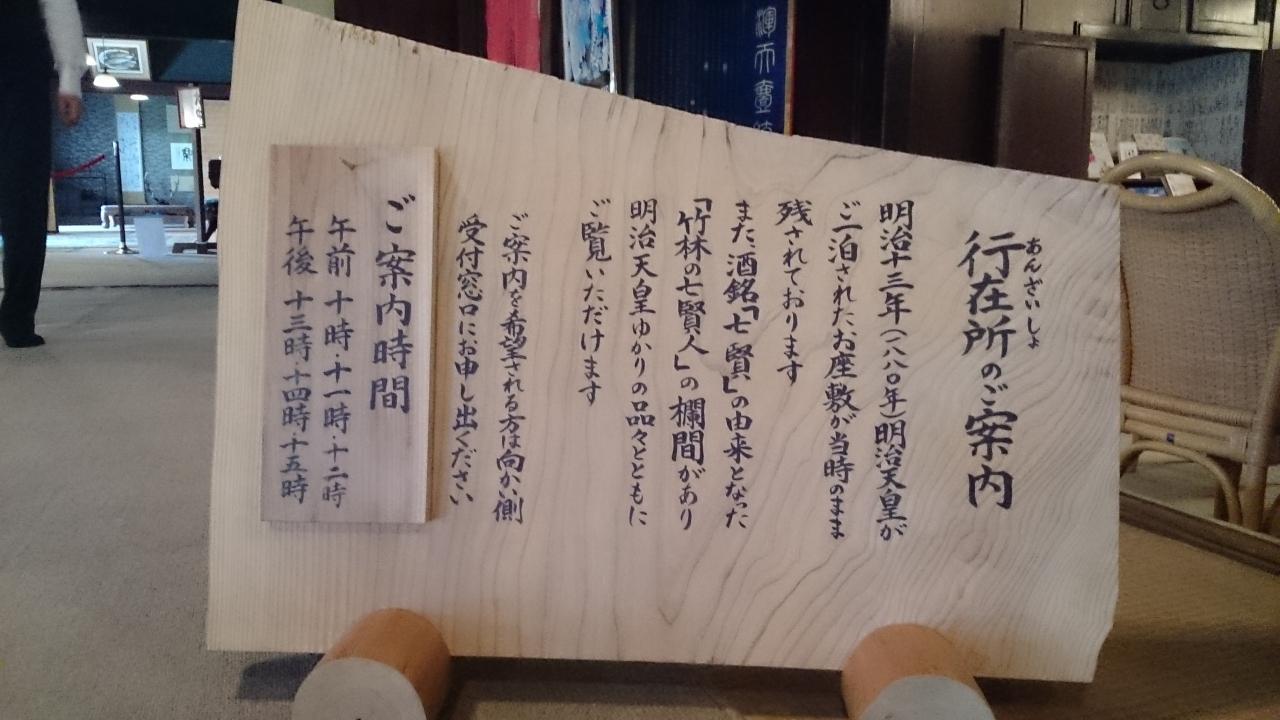 あんざいしょ
行在所のご案内
明治十三年(一八八〇年)明治天皇が
ご一泊されたお座敷が当時のまま
残されております
また、酒銘「七賢」の由来となった
「竹林の七賢人」の欄間があり
明治天皇ゆかりの品々とともに
ご覧いただけます
ご案内を希望される方は向かい側
受付窓口にお申し出ください
ご案内時間
午前 十時・十一時・十二時
午後 十三時十四時十五時